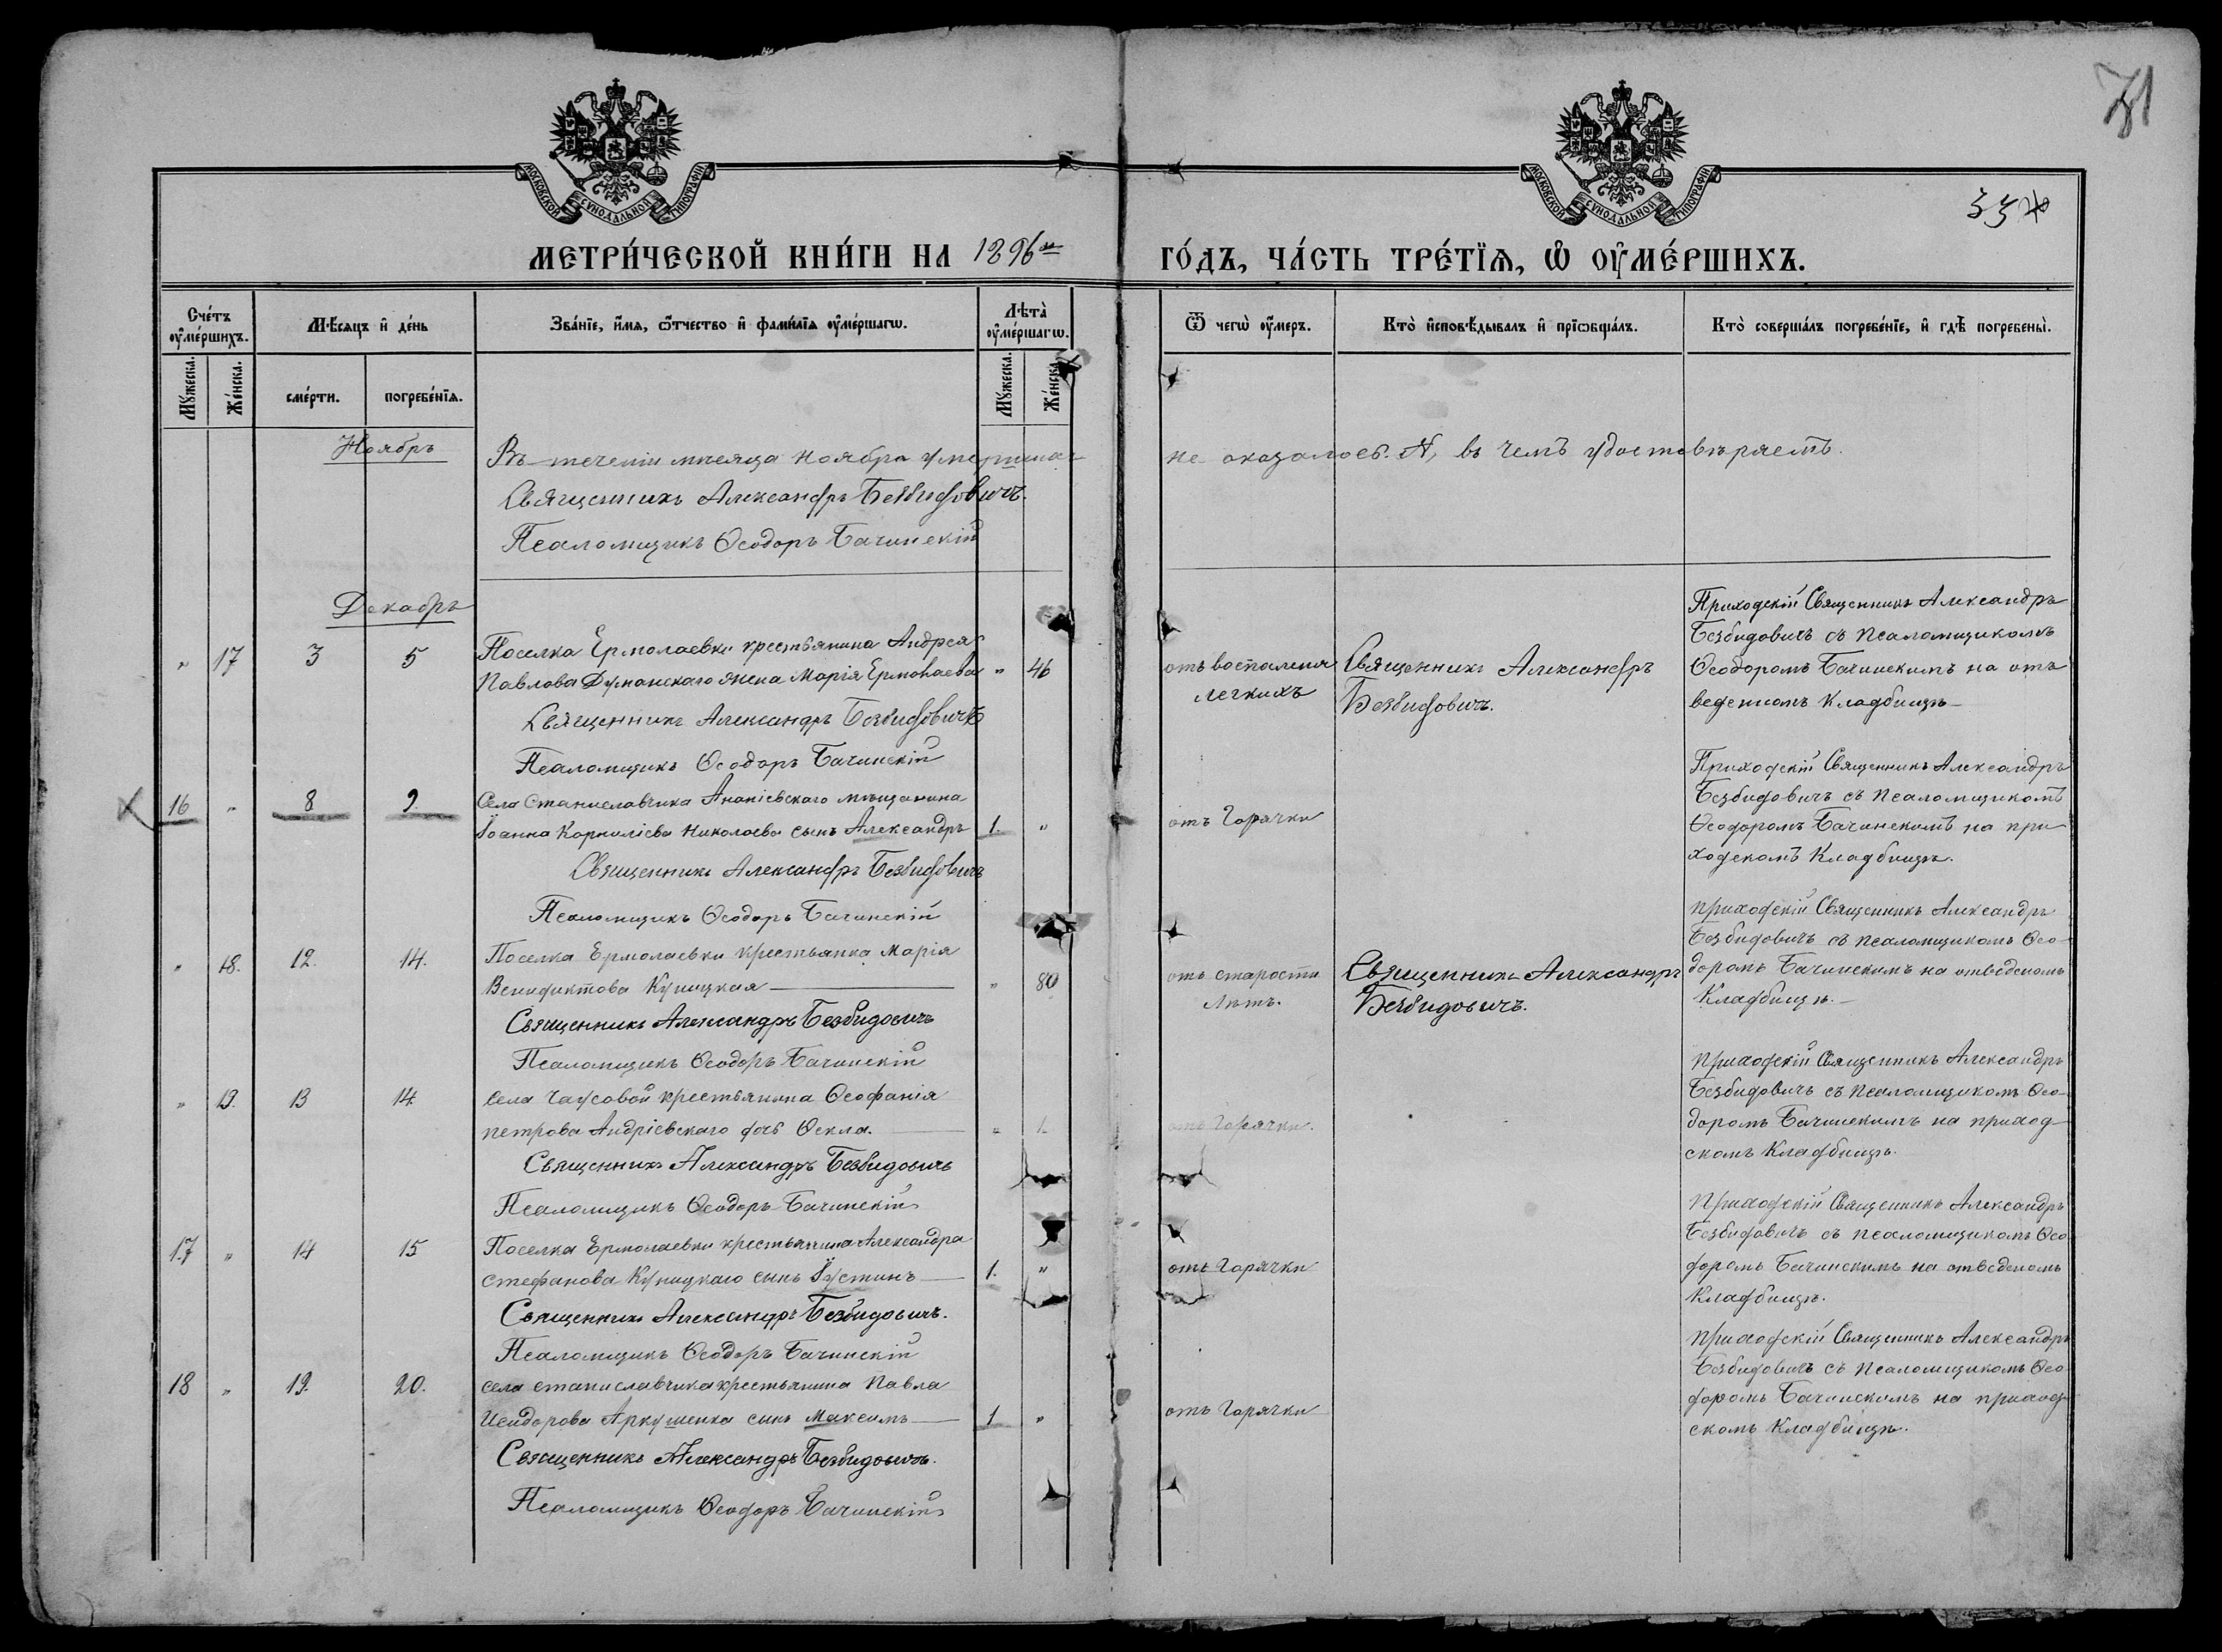 71
МОСКОВСКОЙ СѴНОДАЛЬНОЙ ТИПОГРАФІИ
МОСКОВСКОЙ СѴНОДАЛЬНОЙ ТИПОГРАФІИ
МЕТРИ́ЧЕСКОЙ КНИ́ГИ НА 1896й ГО́ДЪ, ЧА́СТЬ ТРЕ́ТЇѦ, Ѡ ОУ҆МЕ́РШИХЪ.
Сче́тъ оу҆ме́ршихъ.
Мꙋ́жеска.
Же́нска.
Мѣ́сяцъ и҆ де́нь
сме́рти.
погребе́нїѧ.
Зва́нїе, и҆́мѧ, ѻ҆́тчество и҆ фами́лїѧ оу҆ме́ршагѡ.
Лѣта̀ оу҆ме́ршагѡ.
Мꙋ́жеска.
Же́нска.
Ѿ чегѡ̀ оу҆́меръ.
Кто̀ и҆сповѣ́дывалъ и҆ прїѡбща́лъ.
Кто̀ соверша́лъ погребе́нїе, и҆ гдѣ̀ погребены̀.
Ноябрь
Въ теченіи мѣсяца ноября умершихъ не оказалось въ чемъ удостовѣряетъ.
Священникъ Александръ Безбидовичъ.
Псаломщикъ Ѳеодоръ Бачинскій
Декабрь
" 17 3 5
Поселка Ермолаевки крестьянина Андрея
Павлова Думанскаго жена Марія Ермолаева " 46
Священникъ Александръ Безбидовичъ
Псаломщикъ Ѳеодоръ Бачинскій
отъ воспаленія
легкихъ
Священникъ Александръ
Безбидовичъ.
Приходскій Священникъ Александръ
Безбидовичъ съ псаломщикомъ
Ѳеодоромъ Бачинскимъ на отъ
веденномъ кладбищѣ
16 " 8 9.
Села Станиславчика Ананіевскаго мѣщанина
Іоанна Корниліева Николаева сынъ Александръ 1. "
Священникъ Александръ Безбидовичъ
Псаломщикъ Ѳеодоръ Бачинскій
отъ горячки
Приходскій Священникъ Александръ
Безбидовичъ съ псаломщикомъ
Ѳеодоромъ Бачинскимъ на при
ходскомъ кладбищѣ.
" 18. 12. 14.
Поселка Ермолаевки крестьянка Марія
Венидиктова Куницкая " 80
Священникъ Александръ Безбидовичъ
Псаломщикъ Ѳеодоръ Бачинскій
отъ старости
лѣтъ.
Священникъ Александръ
Безбидовичъ.
приходскій Священникъ Александръ
Безбидовичъ съ псаломщикомъ Ѳео-
доромъ Бачинскимъ на отведеномъ
кладбищѣ.
" 19. 13 14.
села Чаусовой крестьянина Ѳеофанія
петрова Андріевскаго дочь Ѳекла. " 1.
Священникъ Александръ Безбидовичъ
Псаломщикъ Ѳеодоръ Бачинскій
отъ горячки.
приходскій Священникъ Александръ
Безбидовичъ съ псаломщикомъ Ѳео-
доромъ Бачинскимъ на приход-
скомъ кладбищѣ.
17 " 14 15
Поселка Ермолаевки крестьянина Александра
стефанова Куницкаго сынъ Іустинъ 1. "
Священникъ Александръ Безбидовичъ.
Псаломщикъ Ѳеодоръ Бачинскій
отъ горячки
приходскій Священникъ Александръ
Безбидовичъ съ псаломщикомъ Ѳео
доромъ Бачинскимъ на отведеномъ
кладбищѣ.
18 " 19. 20.
села станиславчика крестьянина Павла
Исидорова Аркушенка сынъ Максимъ 1 "
Священникъ Александръ Безбидовичъ.
Псаломщикъ Ѳеодоръ Бачинскій
отъ горячки
приходскій Священникъ Александръ
Безбидовичъ съ псаломщикомъ Ѳео
доромъ Бачинскимъ на приход-
скомъ кладбищѣ.